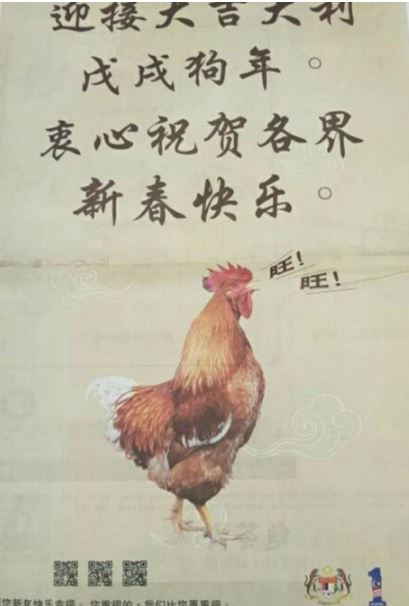 迎接大吉大利
戊戌狗年。
衷心祝贺各界
新春快乐。
旺!
旺!
您新年快乐幸福。您重视的,我们比您更重视。
1